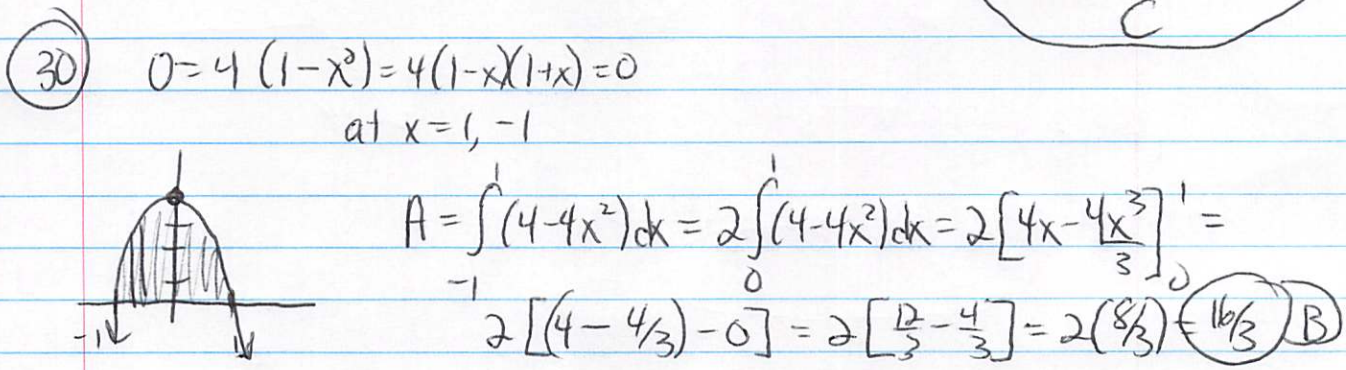 C
30 0=4(1-x²)=4(1-x)(1+x)=0
at x=1, -1
A = ∫₋₁¹(4-4x²)dx = 2∫₀¹(4-4x²)dx = 2[4x-4x³/3]₀¹ =
2[(4-4/3)-0] = 2[12/3-4/3] = 2(8/3) = 16/3 B
-1 1